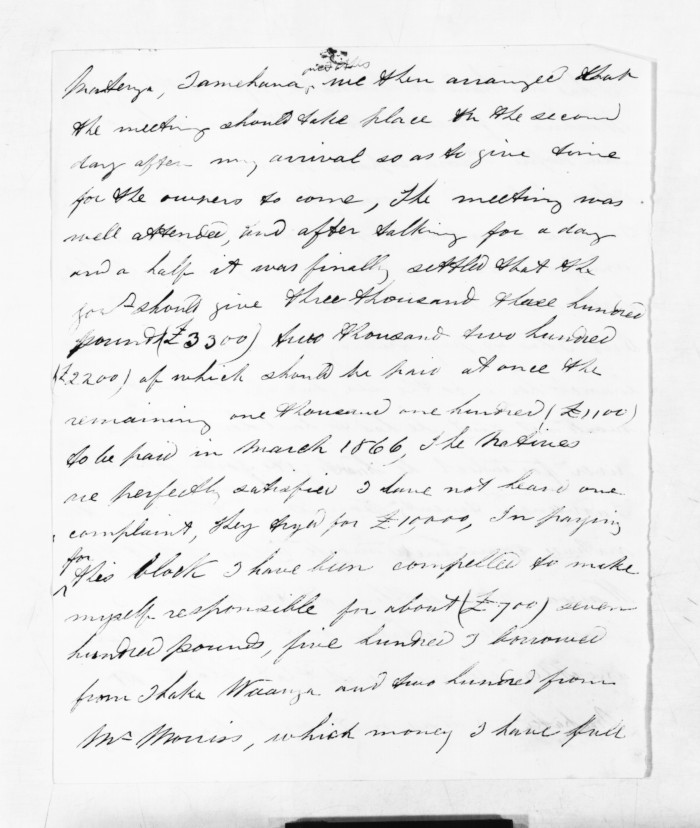 Matenga, Tamehana, we then arranged that
the meeting should take place on the second
day after my arrival so as to give time
for the owners to come, The meeting was
well attended, and after talking for a day
and a half it was finally settled that the
govt should give three thousand three hundred
pounds (£3300) two thousand two hundred
(£2200) of which should be paid at once the
remaining one thousand one hundred (£1100)
to be paid in March 1866, The Natives
are perfectly satisfied I have not heard one
complaint, they tryed for £10,000, In paying
for
this block I have been compelled to make
myself responsible for about (£700) seven
hundred pounds, five hundred I borrowed
from Ihaka Waanga and two hundred from
Mr Morriss, which money I have full